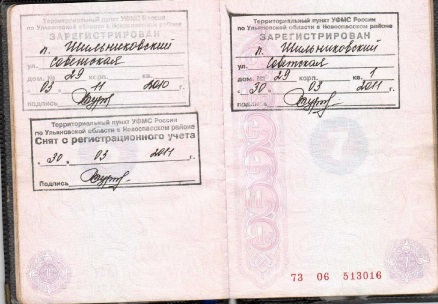 Территориальный пункт УФМС России
по Ульяновской области в Новоспасском районе
ЗАРЕГИСТРИРОВАН
п. Шильниковский
ул. Советская
дом. № 29 корп. кв.
« 03 » 11 2010 г.
подпись
Территориальный пункт УФМС России
по Ульяновской области в Новоспасском районе
Снят с регистрационного учета
« 30 » 03 2011 г.
Подпись
Территориальный пункт УФМС России
по Ульяновской области в Новоспасском районе
ЗАРЕГИСТРИРОВАН
п. Шильниковский
ул. Советская
дом. № 29 корп. кв. 1
« 30 » 03 2011 г.
подпись
73 06 513016